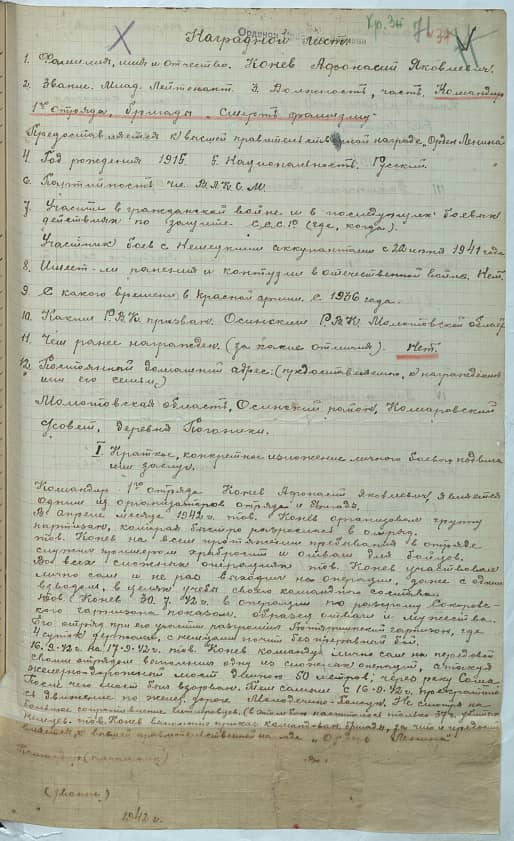 Орденом
Наградной лист
1. Фамилия, имя и отчество. Конев Афонасий Яковлевич.
2. Звание. Млад. Лейтенант. 3. Должность, часть. Командир
1го отряда, бригады „Смерть фашизму"
Предоставляется к высшей правительственной награде „Орден Ленина"
4. Год рождения 1915. 5. Национальность. Русский.
6. Партийность. чл. В.Л.К.С.М.
7. Участие в гражданской войне и в последующих боевых
действиях по защите С.С.С.Р. (где, когда).
Участник боев с Немецкими оккупантами с 22 июня 1941 года
8. Имеет-ли ранения и контузии в отечественной войне. Нет.
9. С какого времени в Красной армии. с 1936 года.
10. Каким Р.В.К. призван. Осинским Р.В.К. Молотовской области
11. Чем ранее награжден. (за какие отличия). Нет.
12. Постоянный домашний адрес: (представляемого, к награждению
или его семьи)
Молотовская область, Осинский район, Комаровский
с/совет, деревня
I Краткое, конкретное изложение личного боевого подвига
или заслуг.
Командир 1го отряда Конев Афонасий Яковлевич, является
одним из организаторов отряда и
В апреле месяце 1942 г. тов. Конев организовал группу
партизан, которая быстро разрослась в отряд.
тов. Конев на всем протяжении пребывания в отряде
служил примером храбрости и отваги для бойцов.
Во всех сложных операциях тов. Конев участвовал
лично сам и не раз выходил на операции, даже с одним
взводом, в целях учебы своего командного состава.
тов. Конев 30.7.42 г. в операции по разгрому
гарнизона показал образец отваги и мужества.
Его отряд при его участии разгромил гарнизон, где
4 суток держался, с
16.9.42 г. на 17.9.42 г. тов. Конев командуя лично сам на передовой
своим отрядом выполнил одну из сложных операций,
железнодорожный мост длиною 50 метров, через реку
После чего мост был взорван. Тем самым с 16.9.42 г. прекратилось
движение по желез. дороге Молодечно-Полоцк. Не смотря на
большое сопротивление гитлеровцев, (в этом бою насчиталось только 37 ч. убитых
немцев. тов. Конев выполнил приказ командования бригады, за что и представляется
к высшей правительственной награде „Орден Ленина"
1942 г.